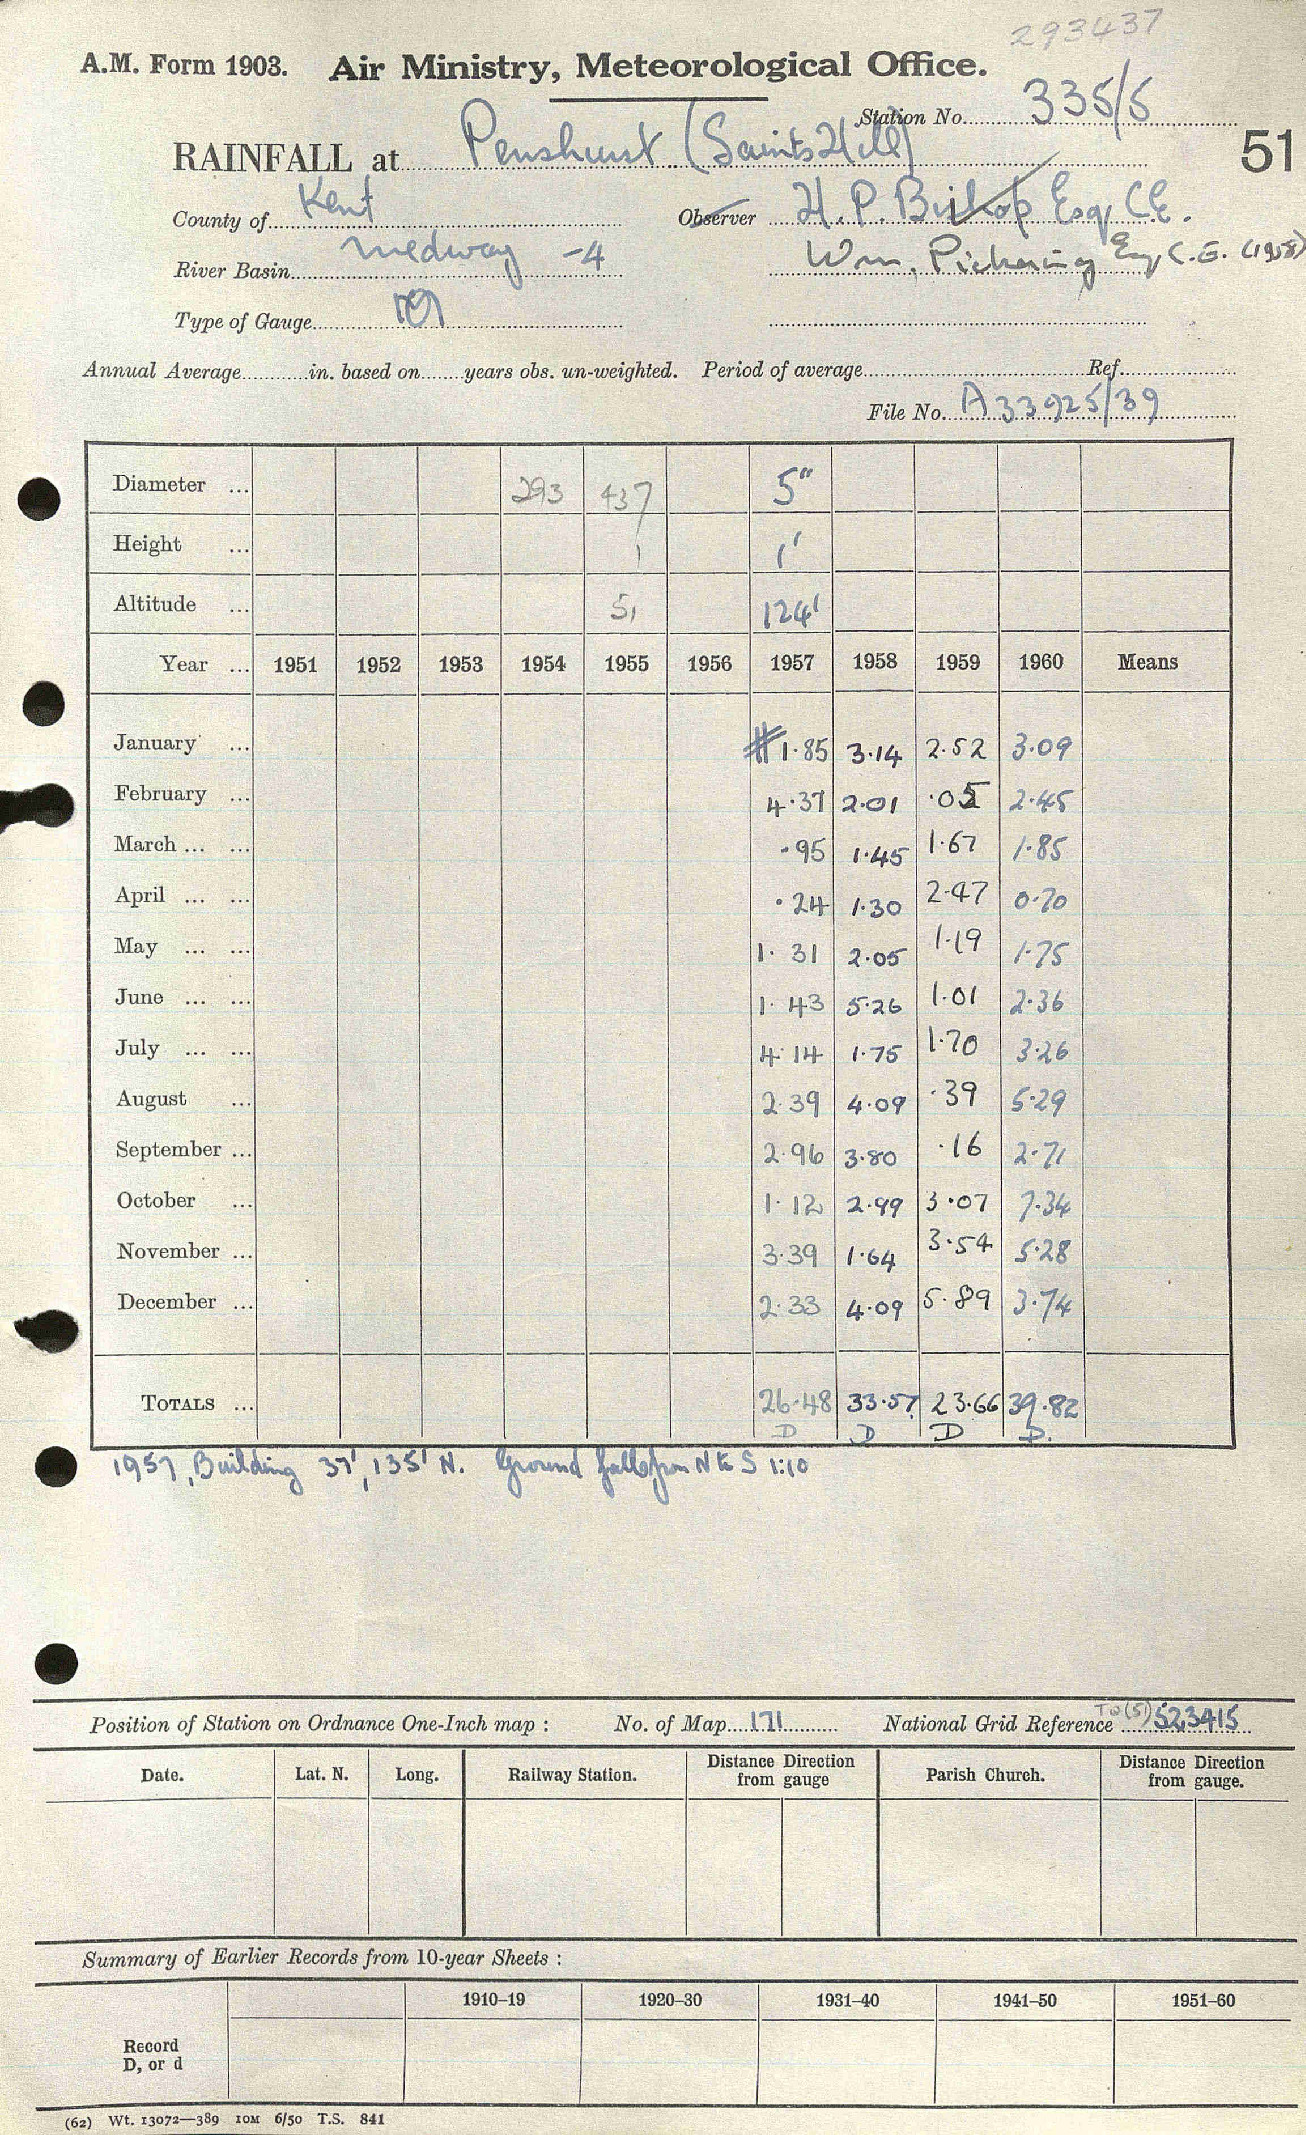 293437
A.M. Form 1903. Air Ministry, Meteorological Office.
Station No. 335/5
RAINFALL at Penshurst (Saints Hill)
51
County of Kent
Observer H. P. Bishop Esq. C.E.
River Basin Medway -4
Wm. Pickering Esq. C.E. (1958)
Type of Gauge
Annual Average in. based on years obs. un-weighted. Period of average Ref.
File No. A33925/39
Diameter ... 293 437 5"
Height ... 1 1'
Altitude ... 51 124'
Year ... 1951 1952 1953 1954 1955 1956 1957 1958 1959 1960 Means
January ... # 1.85 3.14 2.52 3.09
February ... 4.37 2.01 .05 2.45
March ... ... .95 1.45 1.67 1.85
April ... ... .24 1.30 2.47 0.70
May ... ... 1.31 2.05 1.19 1.75
June ... ... 1.43 5.26 1.01 2.36
July ... ... 4.14 1.75 1.70 3.26
August ... 2.39 4.09 .39 5.29
September ... 2.96 3.80 .16 2.71
October ... 1.12 2.99 3.07 7.34
November ... 3.39 1.64 3.54 5.28
December ... 2.33 4.09 5.89 3.74
TOTALS ... 26.48 33.57 23.66 39.82
D D D D.
1957, Building 37', 135' N. Ground falls from N to S 1:10
Position of Station on Ordnance One-Inch map : No. of Map 171 National Grid Reference TQ(51) 523415
Date. Lat. N. Long. Railway Station. Distance Direction from gauge Parish Church. Distance Direction from gauge.
Summary of Earlier Records from 10-year Sheets :
1910–19 1920–30 1931–40 1941–50 1951–60
Record
D, or d
(62) Wt. 13072—389 10M 6/50 T.S. 841